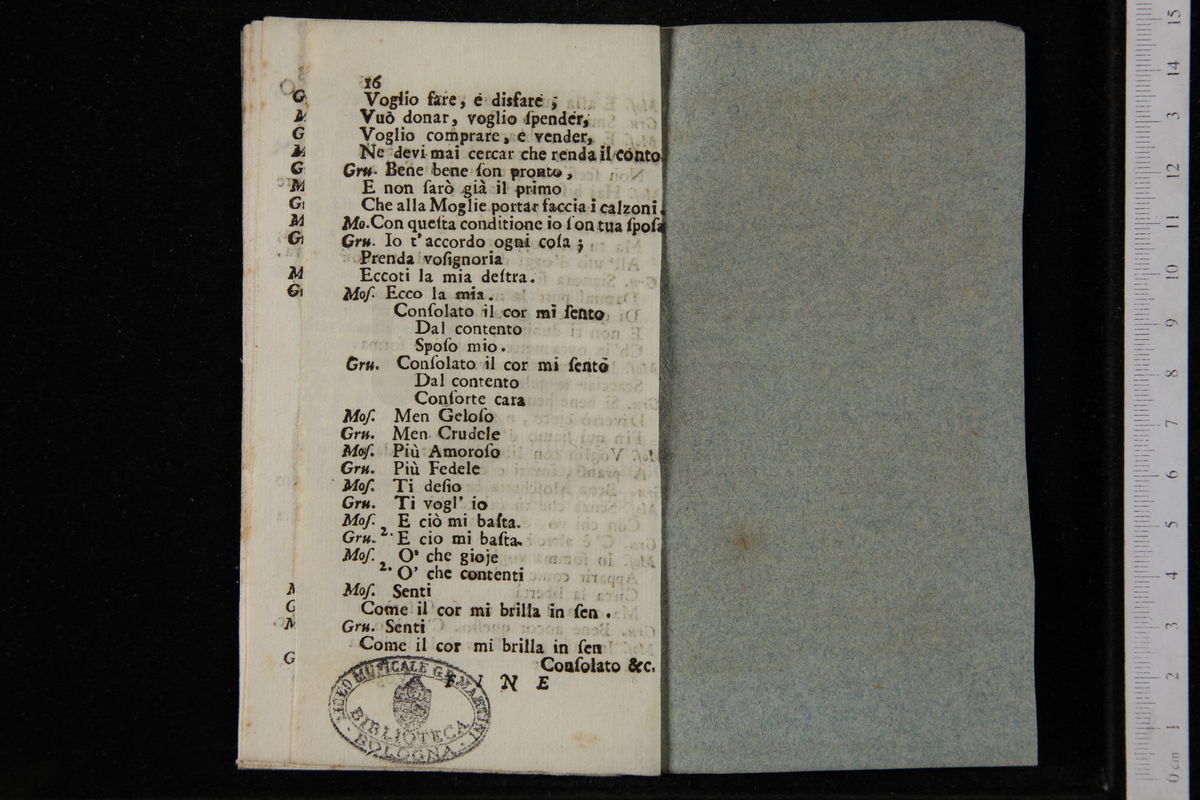 16
Voglio fare, e disfare;
Vuò donar, voglio ſpender,
Voglio comprare, e vender,
Ne devi mai cercar che renda il conto
Gru. Bene bene ſon pronto,
E non ſarò già il primo
Che alla Moglie portar faccia i calzoni.
Mo. Con queſta conditione io ſon tua ſpoſa
Gru. Io t'accordo ogni coſa;
Prenda voſignoria
Eccoti la mia deſtra.
Moſ. Ecco la mia.
Conſolato il cor mi ſento
Dal contento
Spoſo mio.
Gru. Conſolato il cor mi ſento
Dal contento
Conſorte cara
Moſ. Men Geloſo
Gru. Men Crudele
Moſ. Più Amoroſo
Gru. Più Fedele
Moſ. Ti deſio
Gru. Ti vogl' io
Moſ. E ciò mi baſta.
Gru. 2. E cio mi baſta.
Moſ. O' che gioje
2. O' che contenti
Moſ. Senti
Come il cor mi brilla in ſen.
Gru. Senti
Come il cor mi brilla in ſen
Conſolato &c.
FINE
LICEO MUSICALE G.B. MARTINI
BIBLIOTECA
BOLOGNA
0 cm 1 2 3 4 5 6 7 8 9 10 11 12 3 14 15